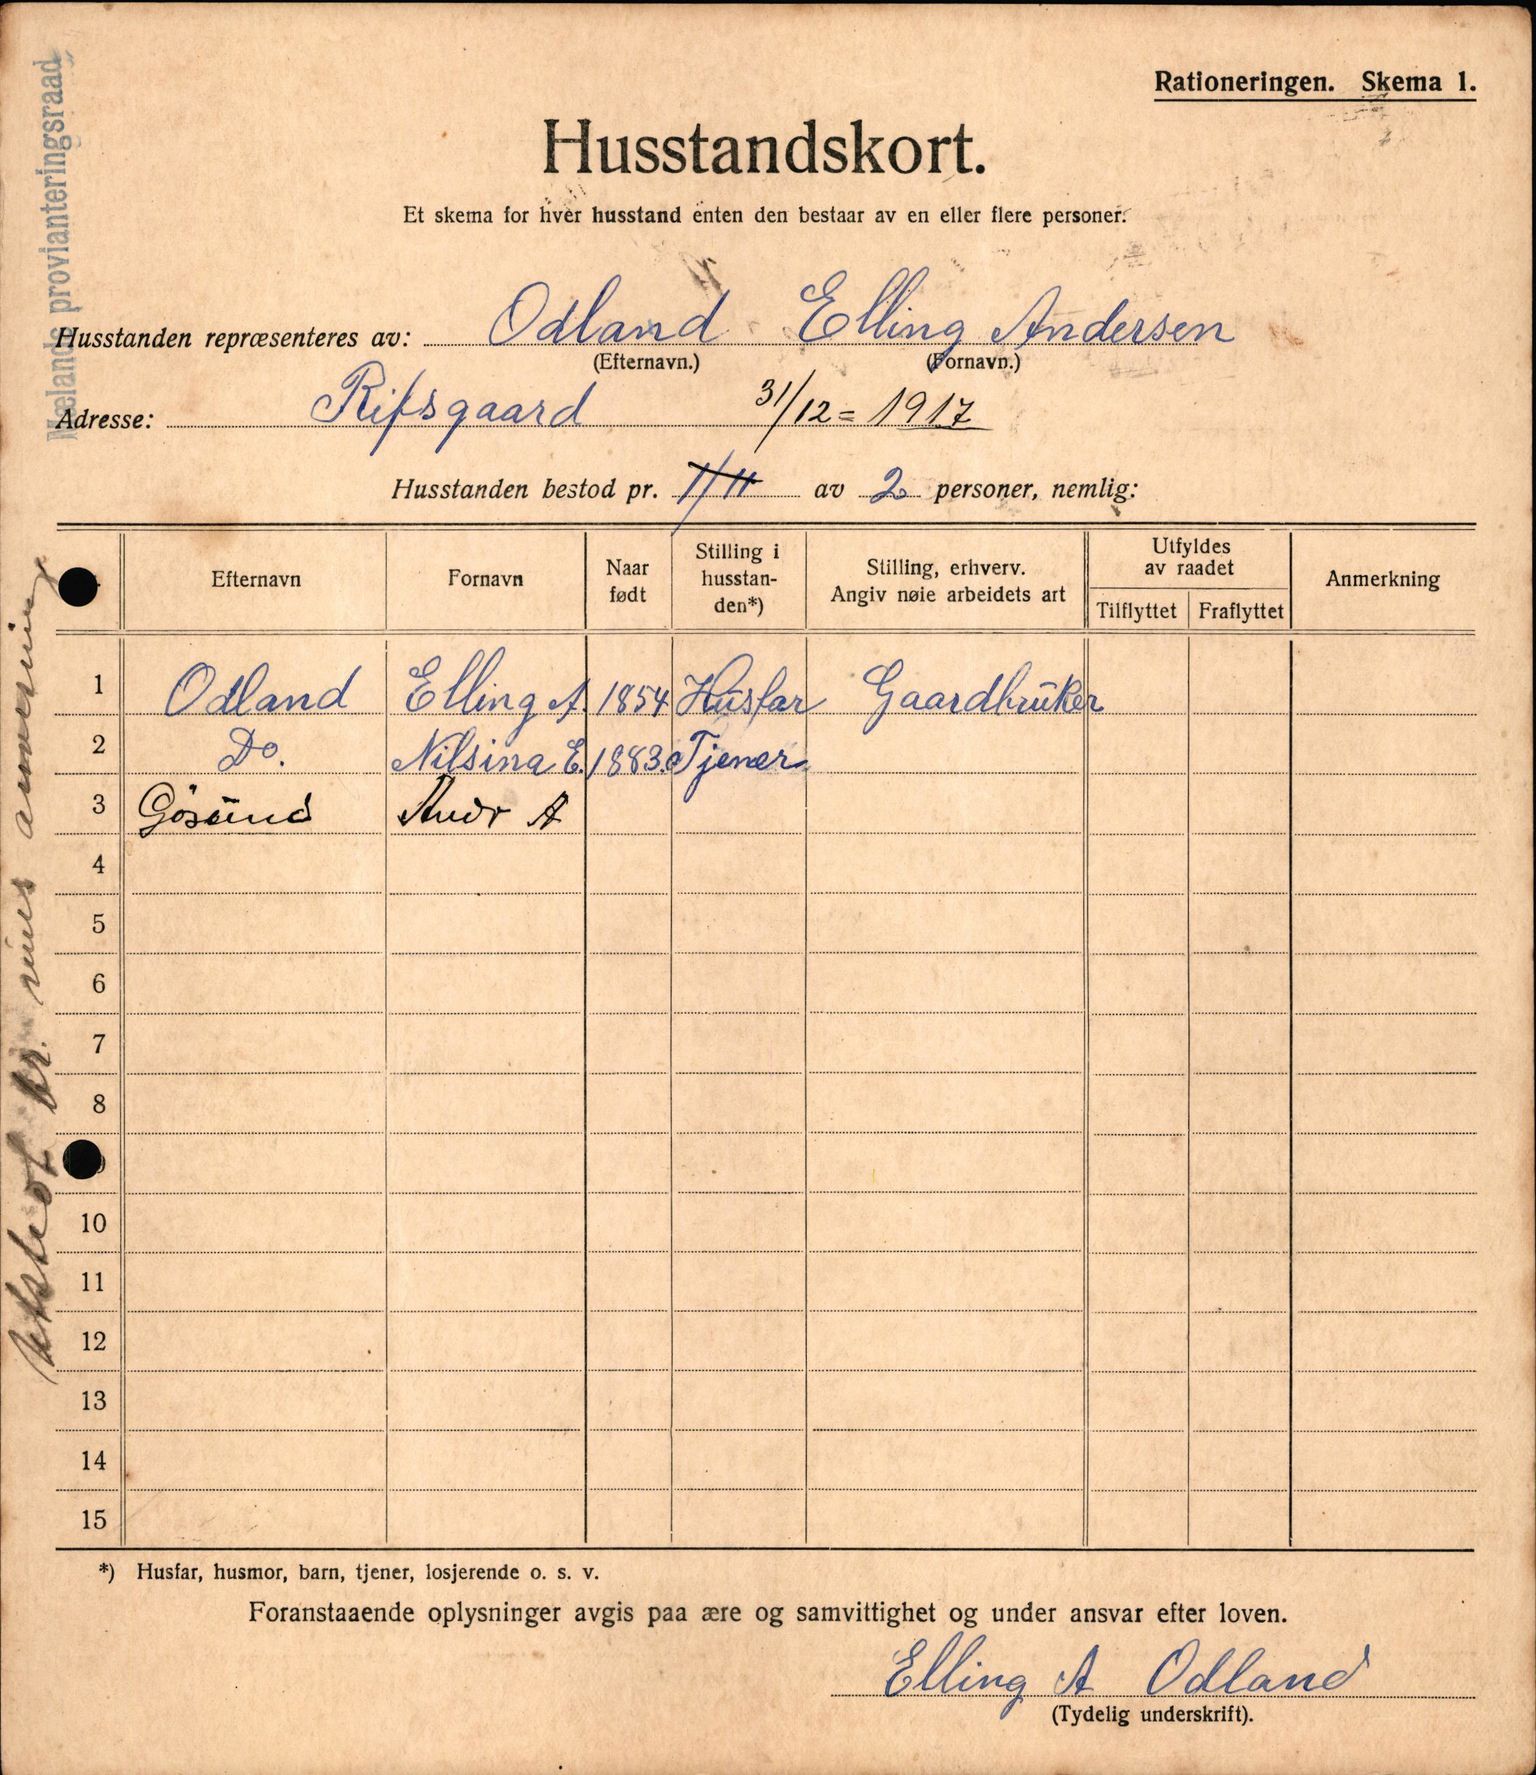 Rationeringen. Skema 1.
Husstandskort.
Et skema for hver husstand enten den bestaar av en eller flere personer.
Husstanden repræsenteres av: Odland Elling Andersen
(Efternavn.) (Fornavn.)
Adresse: Rifsgaard 31/12 = 1917
Husstanden bestod pr. 1/11 av 2 personer, nemlig:
Efternavn Fornavn Naar født Stilling i husstan-den*) Stilling, erhverv. Angiv nøie arbeidets art Utfyldes av raadet Tilflyttet Fraflyttet Anmerkning
1 Odland Elling A. 1854 Husfar Gaardbruker
2 Do. Nilsina E. 1883. Tjener
3 Gøsund Andr A
4
5
6
7
8
10
11
12
13
14
15
*) Husfar, husmor, barn, tjener, losjerende o. s. v.
Foranstaaende oplysninger avgis paa ære og samvittighet og under ansvar efter loven.
Elling A Odland
(Tydelig underskrift).
provianteringsraad